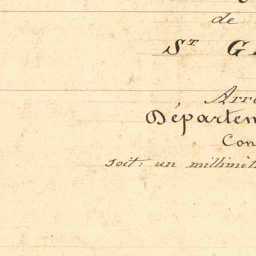 de
ST G
Arr
Départem
Con
soit: un millimèt